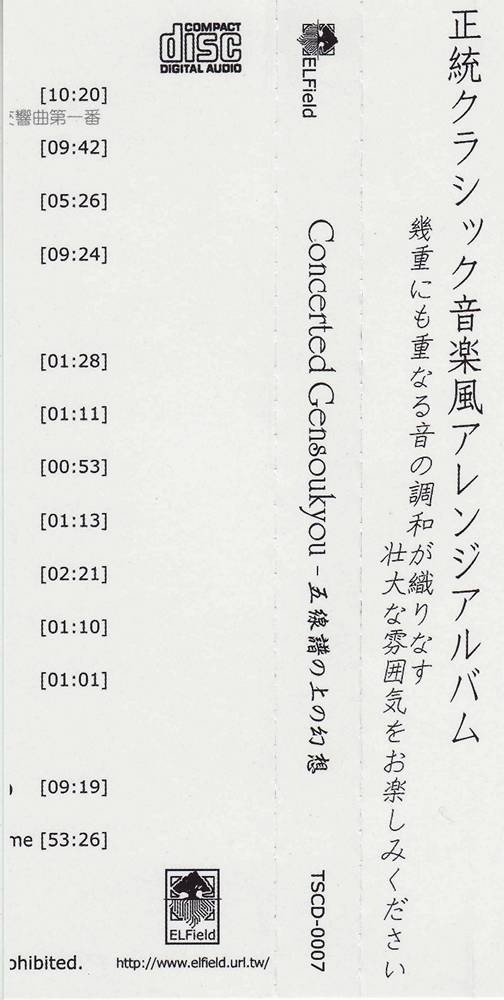 COMPACT
disc
DIGITAL AUDIO
[10:20]
響曲第一番
[09:42]
[05:26]
[09:24]
[01:28]
[01:11]
[00:53]
[01:13]
[02:21]
[01:10]
[01:01]
[09:19]
me [53:26]
ELField
ohibited. http://www.elfield.url.tw/
ELField
Concerted Gensoukyou - 五線譜の上の幻想
TSCD-0007
正統クラシック音楽風アレンジアルバム
幾重にも重なる音の調和が織りなす
壮大な雰囲気をお楽しみください